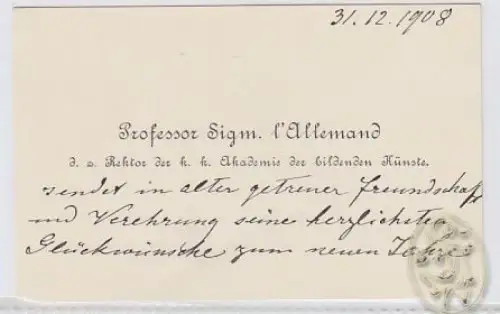 31.12.1908
Professor Sigm. l'Allemand
d. z. Rektor der k. k. Akademie der bildenden Künste.
sendet in alter getreuer Freundschaft
und Verehrung seine herzlichsten
Glückwünsche zum neuen Jahre